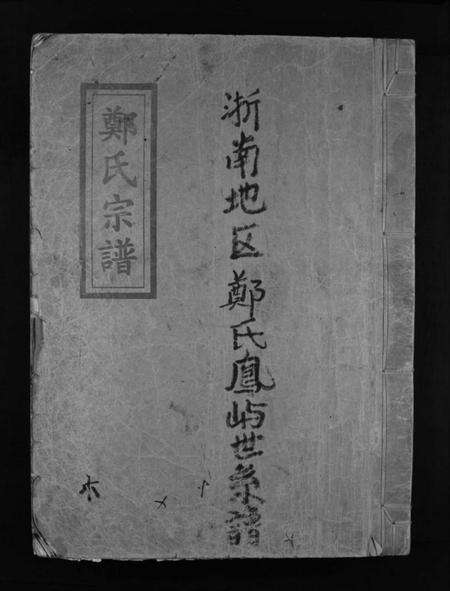 浙南地区鄭氏鳳屿世系譜
鄭氏宗譜